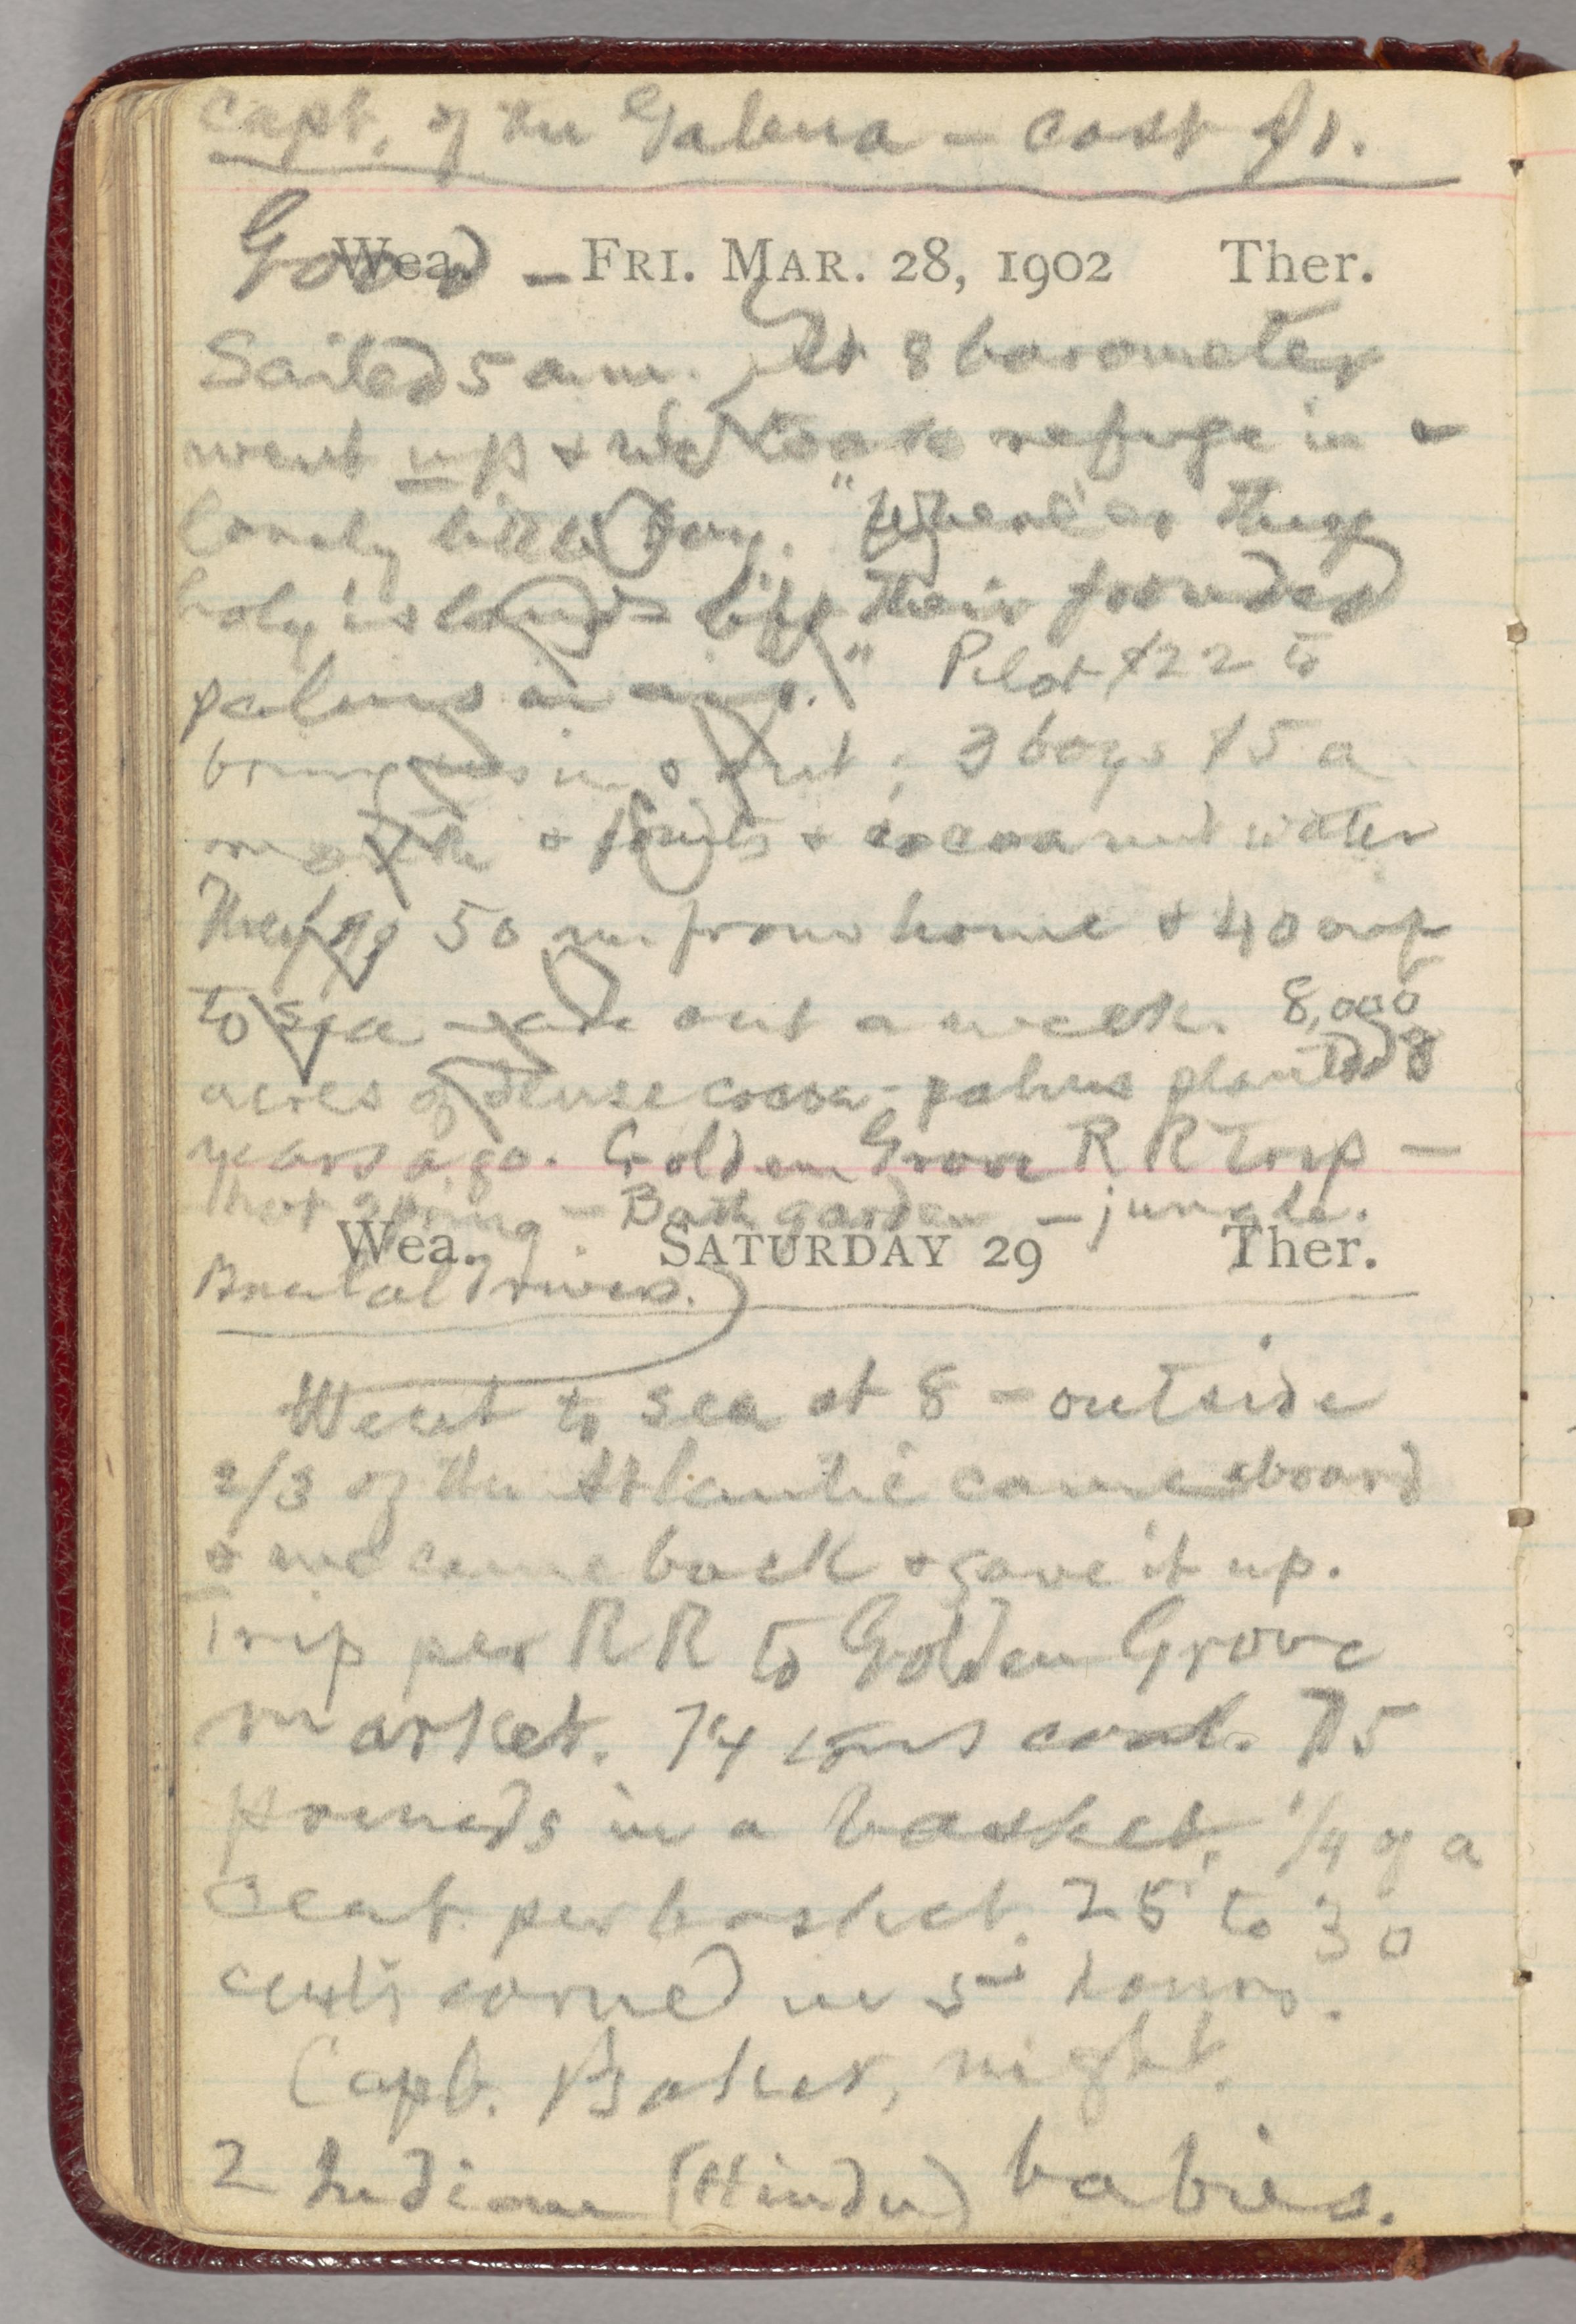 Capt. of the Galena — cost $1.
Wea. FRI. MAR. 28, 1902 Ther.
Good —
Sailed 5 a.m. At 8 barometer
went up & we took refuge in a
lovely little bay. "Where'er these
holy islands lift their fronded
palms in air." Pilot $22 to
bring us in & out; 3 boys $5 a
month & fruits & cocoanut water
They go 50 m. from home & 40
to sea out a week. 8,000
acres of dense cocoa-palms planted 8
years ago. Golden Grove R R trip —
hot spring — Bath garden — jungle.
Wea. SATURDAY 29 Ther.
Brutal drives.
Went to sea at 8 — outside
2/3 of the Atlantic came aboard
& we came back & gave it up.
Trip per RR to Golden Grove
market. 74 tons coal. 75
pounds in a basket. 1/4 of a
cent per basket. 25 to 30
cents earned in 5 hours.
Capt. Baker, night.
2 Indian (Hindu) babies.